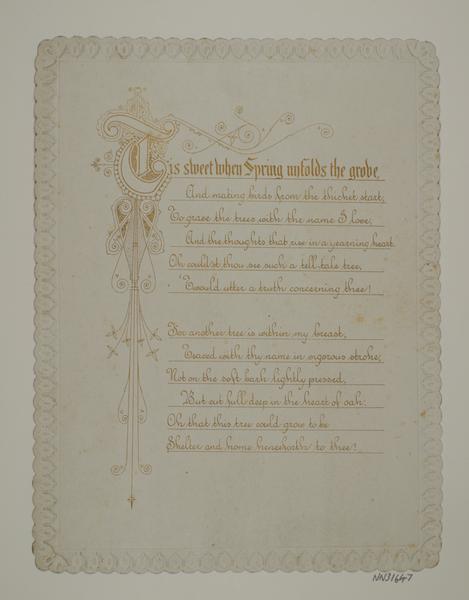 Tis sweet when Spring unfolds the grove,
And mating birds from the thicket start,
To grave the trees with the name I love;
And the thoughts that rise in a yearning heart.
Oh could'st thou see such a tell-tale tree,
'Twould utter a truth concerning thee!
For another tree is within my breast,
Traced with thy name in vigorous stroke;
Not on the soft bark lightly pressed,
But cut full deep in the heart of oak:
Oh that this tree could grow to be
Shelter and home henceforth to thee!
NN31647